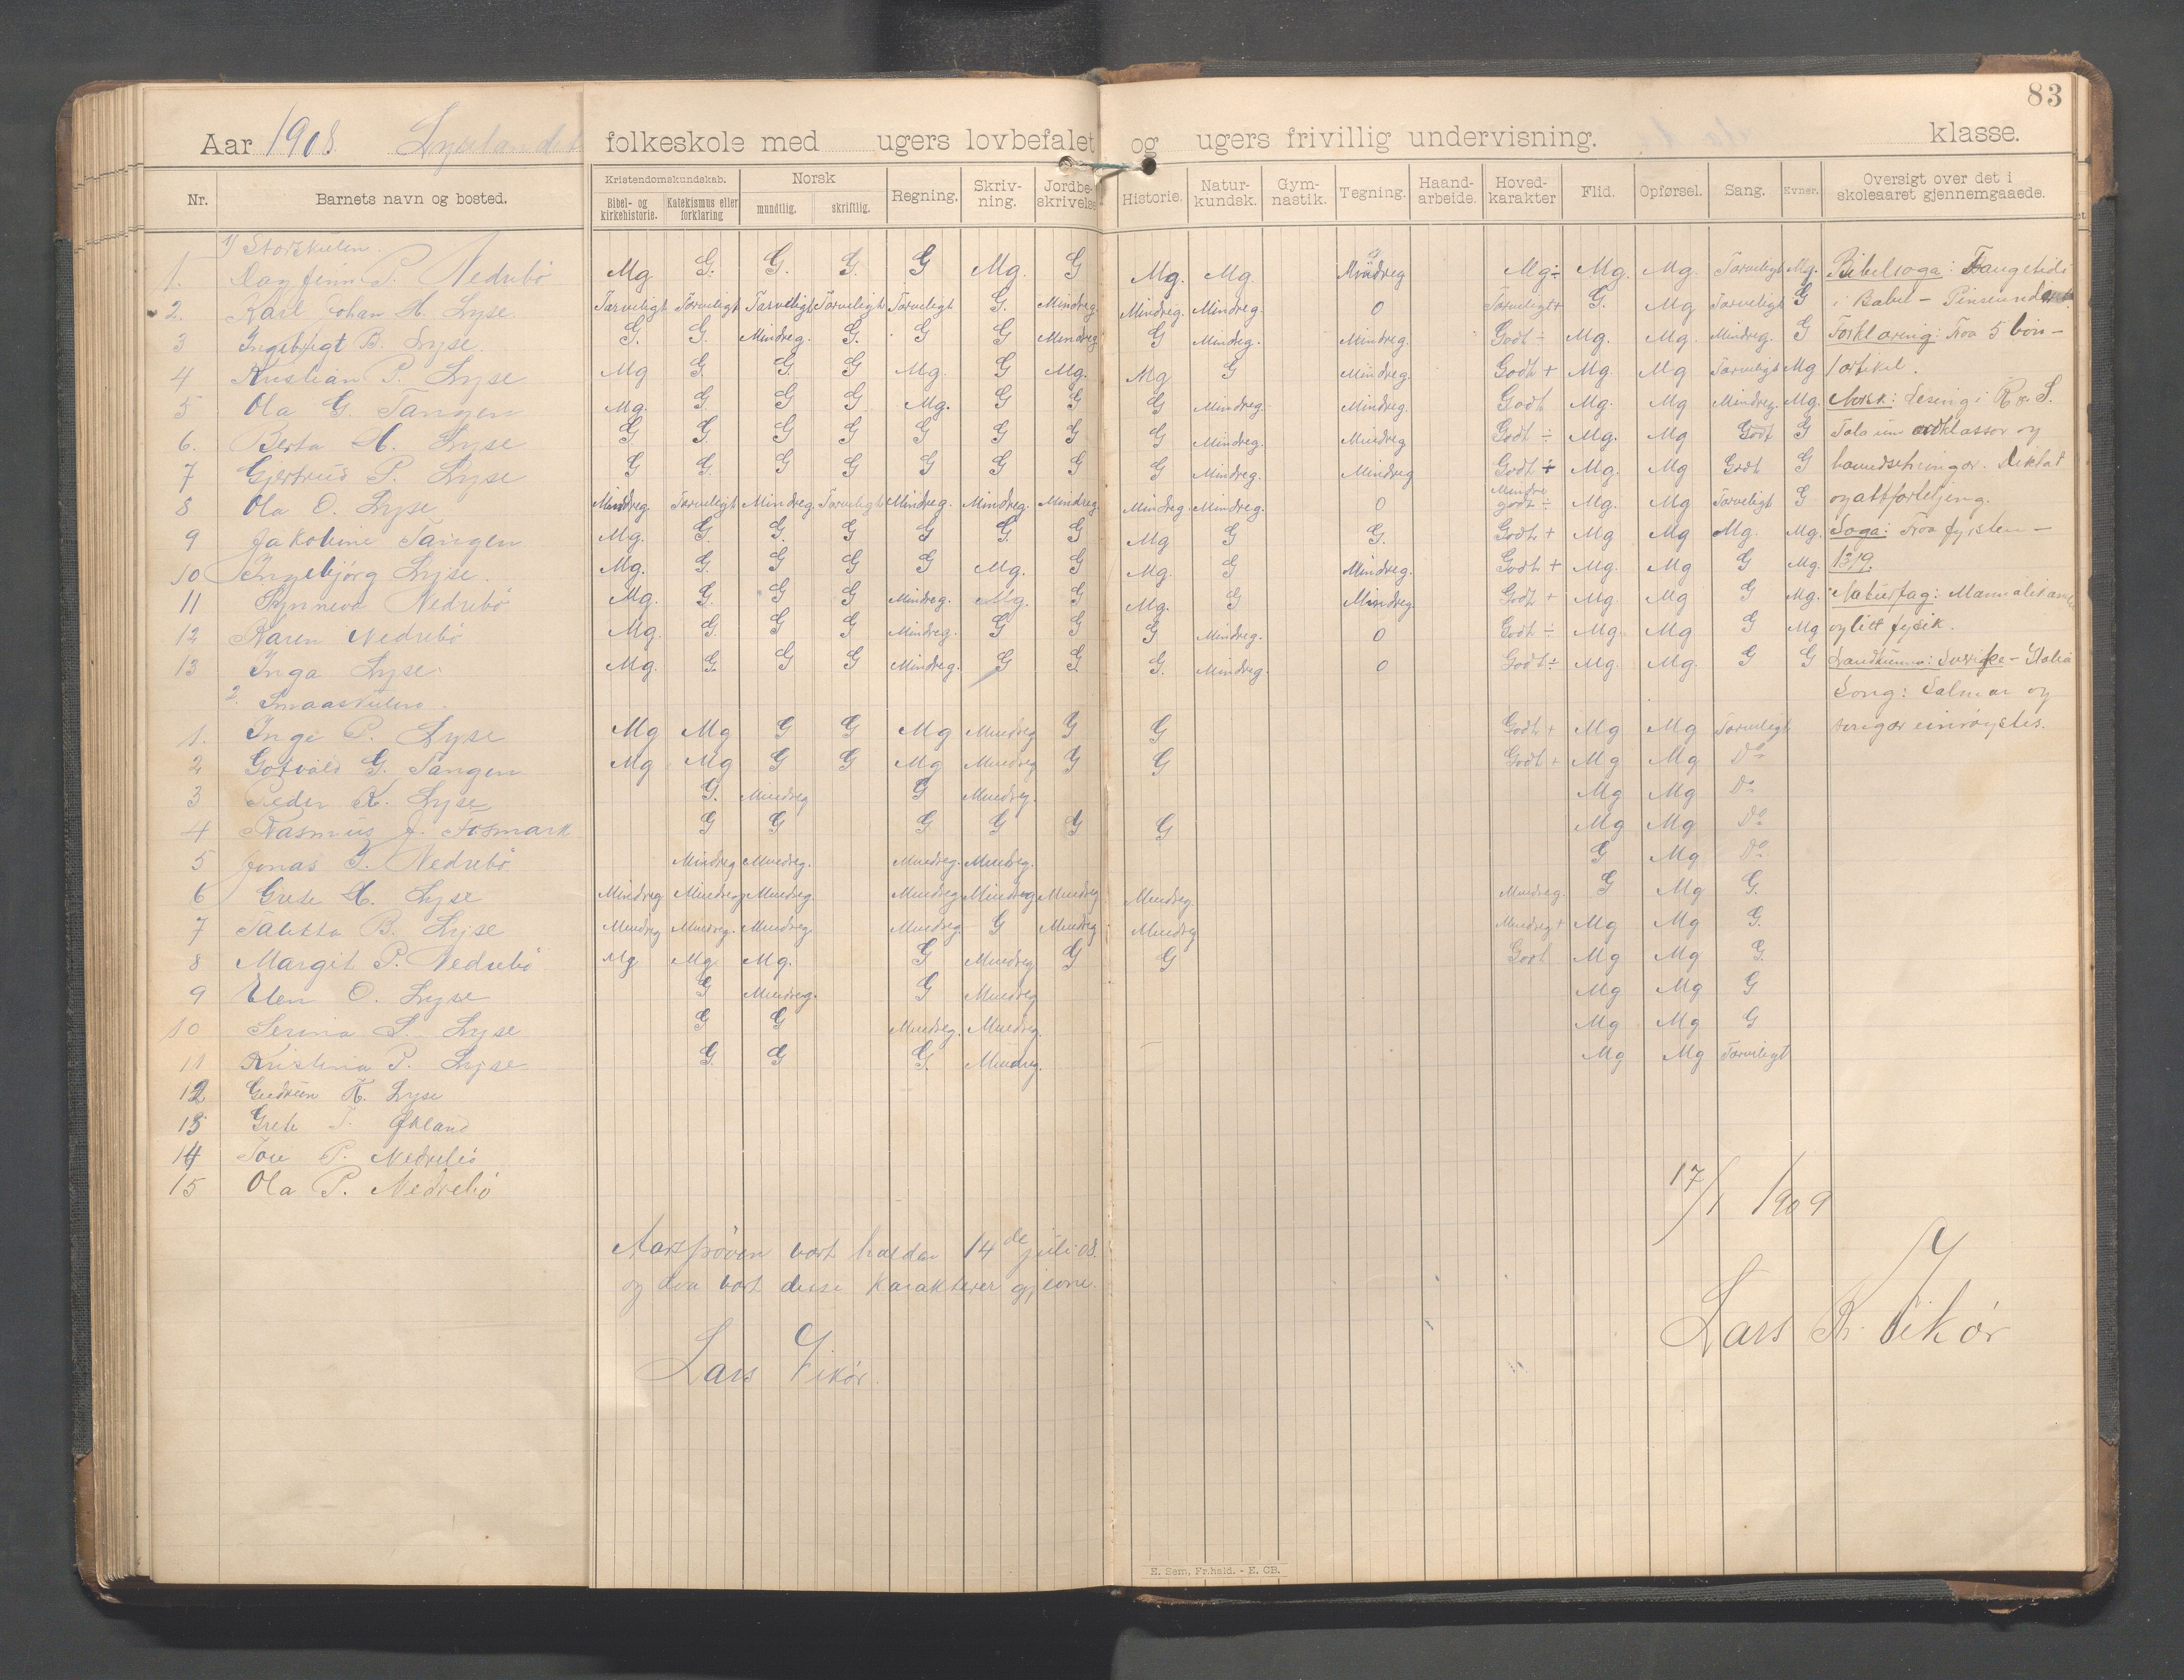 83
Aar 1908 folkeskole med ugers lovbefalet og ugers frivillig undervisning. klasse.
Nr. Barnets navn og bosted. Kristendomskundskab. Bibel- og kirkehistorie. Katekismus eller forklaring Norsk mundtlig. skriftlig. Regning. Skriv-ning. Jordbe-skrivelse Historie. Natur-kundsk. Gym-nastik. Tegning. Haand-arbeide. Hoved-karakter Flid. Opførsel. Sang. Evner. Oversigt over det i skoleaaret gjennemgaaede.
1) Storskulen.
1. Dagfinn P. Nedrebö Mg G. G. G. G Mg. G Mg. Mg. Mindreg Mg÷ Mg. Mg. Tarveligt Mg. Bibelsoga: Fangetidi
2. Karl Johan H. Lyse. Tarveligt Tarveligt Tarveligt Tarveligt Tarveligt G. Mindreg. Mindreg. Mindreg. 0 Tarveligt+ G. Mg Tarveligt G i Babel - Pinseunderet
3 Ingebrigt B. Lyse. G. G. Mindreg. G. G G Mindreg G Mindreg. Mindreg. Godt ÷ Mg. Mg. Mindreg. G Forklaring: Fraa 5 bön -
4 Kristian P. Lyse Mg G. G G Mg. G Mg. Mg G Mindreg. Godt + Mg. Mg Tarveligt Mg 1 artikel.
5 Ola G. Tangen Mg. G. G G Mg. G G G Mindreg. Mindreg. Godt Mg. Mg Mindreg. Mg. Norsk: Lesing i R & S.
6. Berta H. Lyse G. G. G G G G G G Mindreg. Mindreg Godt ÷ Mg. Mg Godt G Tala um ordklassor og
7 Gjertrud P. Lyse G G. G G G G G G Mindreg. Mindreg Godt ÷ Mg. Mg Godt G hovudsetningar. Diktat
8 Ola O. Lyse Mindreg. Tarveligt Mindreg. Tarveligt Mindreg. Mindreg. Mindreg. Mindreg. Mindreg. 0 Mindre godt ÷ Mg. Mg Tarveligt G og attforteljing.
9 Jakobine Tangen Mg. G. G. G G G. G Mg G G. Godt + Mg. Mg Mg. Mg. Soga: Fraa fyrsten -
10 Ingebjörg Lyse. Mg. G. G G G Mg. G Mg. G Mindreg. Godt + Mg. Mg G Mg. 1319.
11 Synneva Nedrebö Mg. G. G G Mindreg. Mg. G Mg. G Mindreg. Godt + Mg. Mg G Mg. Naturfag:
12 Karen Nedrebö Mg. G. G G Mindreg. G G G Mindreg. 0 Godt ÷ Mg. Mg. G Mg og litt fysik.
13 Inga Lyse. Mg. G. G G Mindreg. G G. G. Mindreg. 0 Godt ÷ Mg. Mg. G G Landkunna: - Italia
2. Smaaskulen. Song: Salmar og
1. Inge P. Lyse Mg Mg G G Mg Mindreg G G Godt + Mg Mg Tarveligt songar einröystes.
2 Gotvald G. Tangen Mg Mg G G Mg Mindreg G G Godt + Mg Mg Do
3 Peder K. Lyse G. Mindreg G Mindreg. Mg Mg Do
4 Rasmus J. Fosmark G G G G G G Mg Mg Do
5 Jonas T. Nedrebö Mindreg Mindreg. Mindreg. Mindreg. G Mg Do
6 Grete H. Lyse Mindreg Mindreg Mindreg. Mindreg Mindreg Mindreg. Mindreg. Mindreg. G Mg G.
7 Taletta B. Lyse Mindreg Mindreg. Mindreg. Mindreg G Mindreg Mindreg Mindreg + Mg Mg G.
8 Margit P. Nedrebö Mg Mg. Mg. G Mindreg G G Godt Mg Mg G.
9 Elen O. Lyse G Mindreg. G Mindreg Mg Mg G
10 Serina S. Lyse G G Mindreg. Mindreg. Mg Mg G
11 Kristina P. Lyse G. G G. Mindreg. Mg Mg Tarveligt
12 Gudrun K. Lyse
13 Grete T. Økland
14 Tore P. Nedrebö
15 Ola P. Nedrebö
17/1 1909
Aarsprøven vart halden 14de juli 08.
og daa vart desse karakterer gjevne.
Lars K. Vikør
Lars Vikør.
E. Sem, Fr.hald. - E. CB.